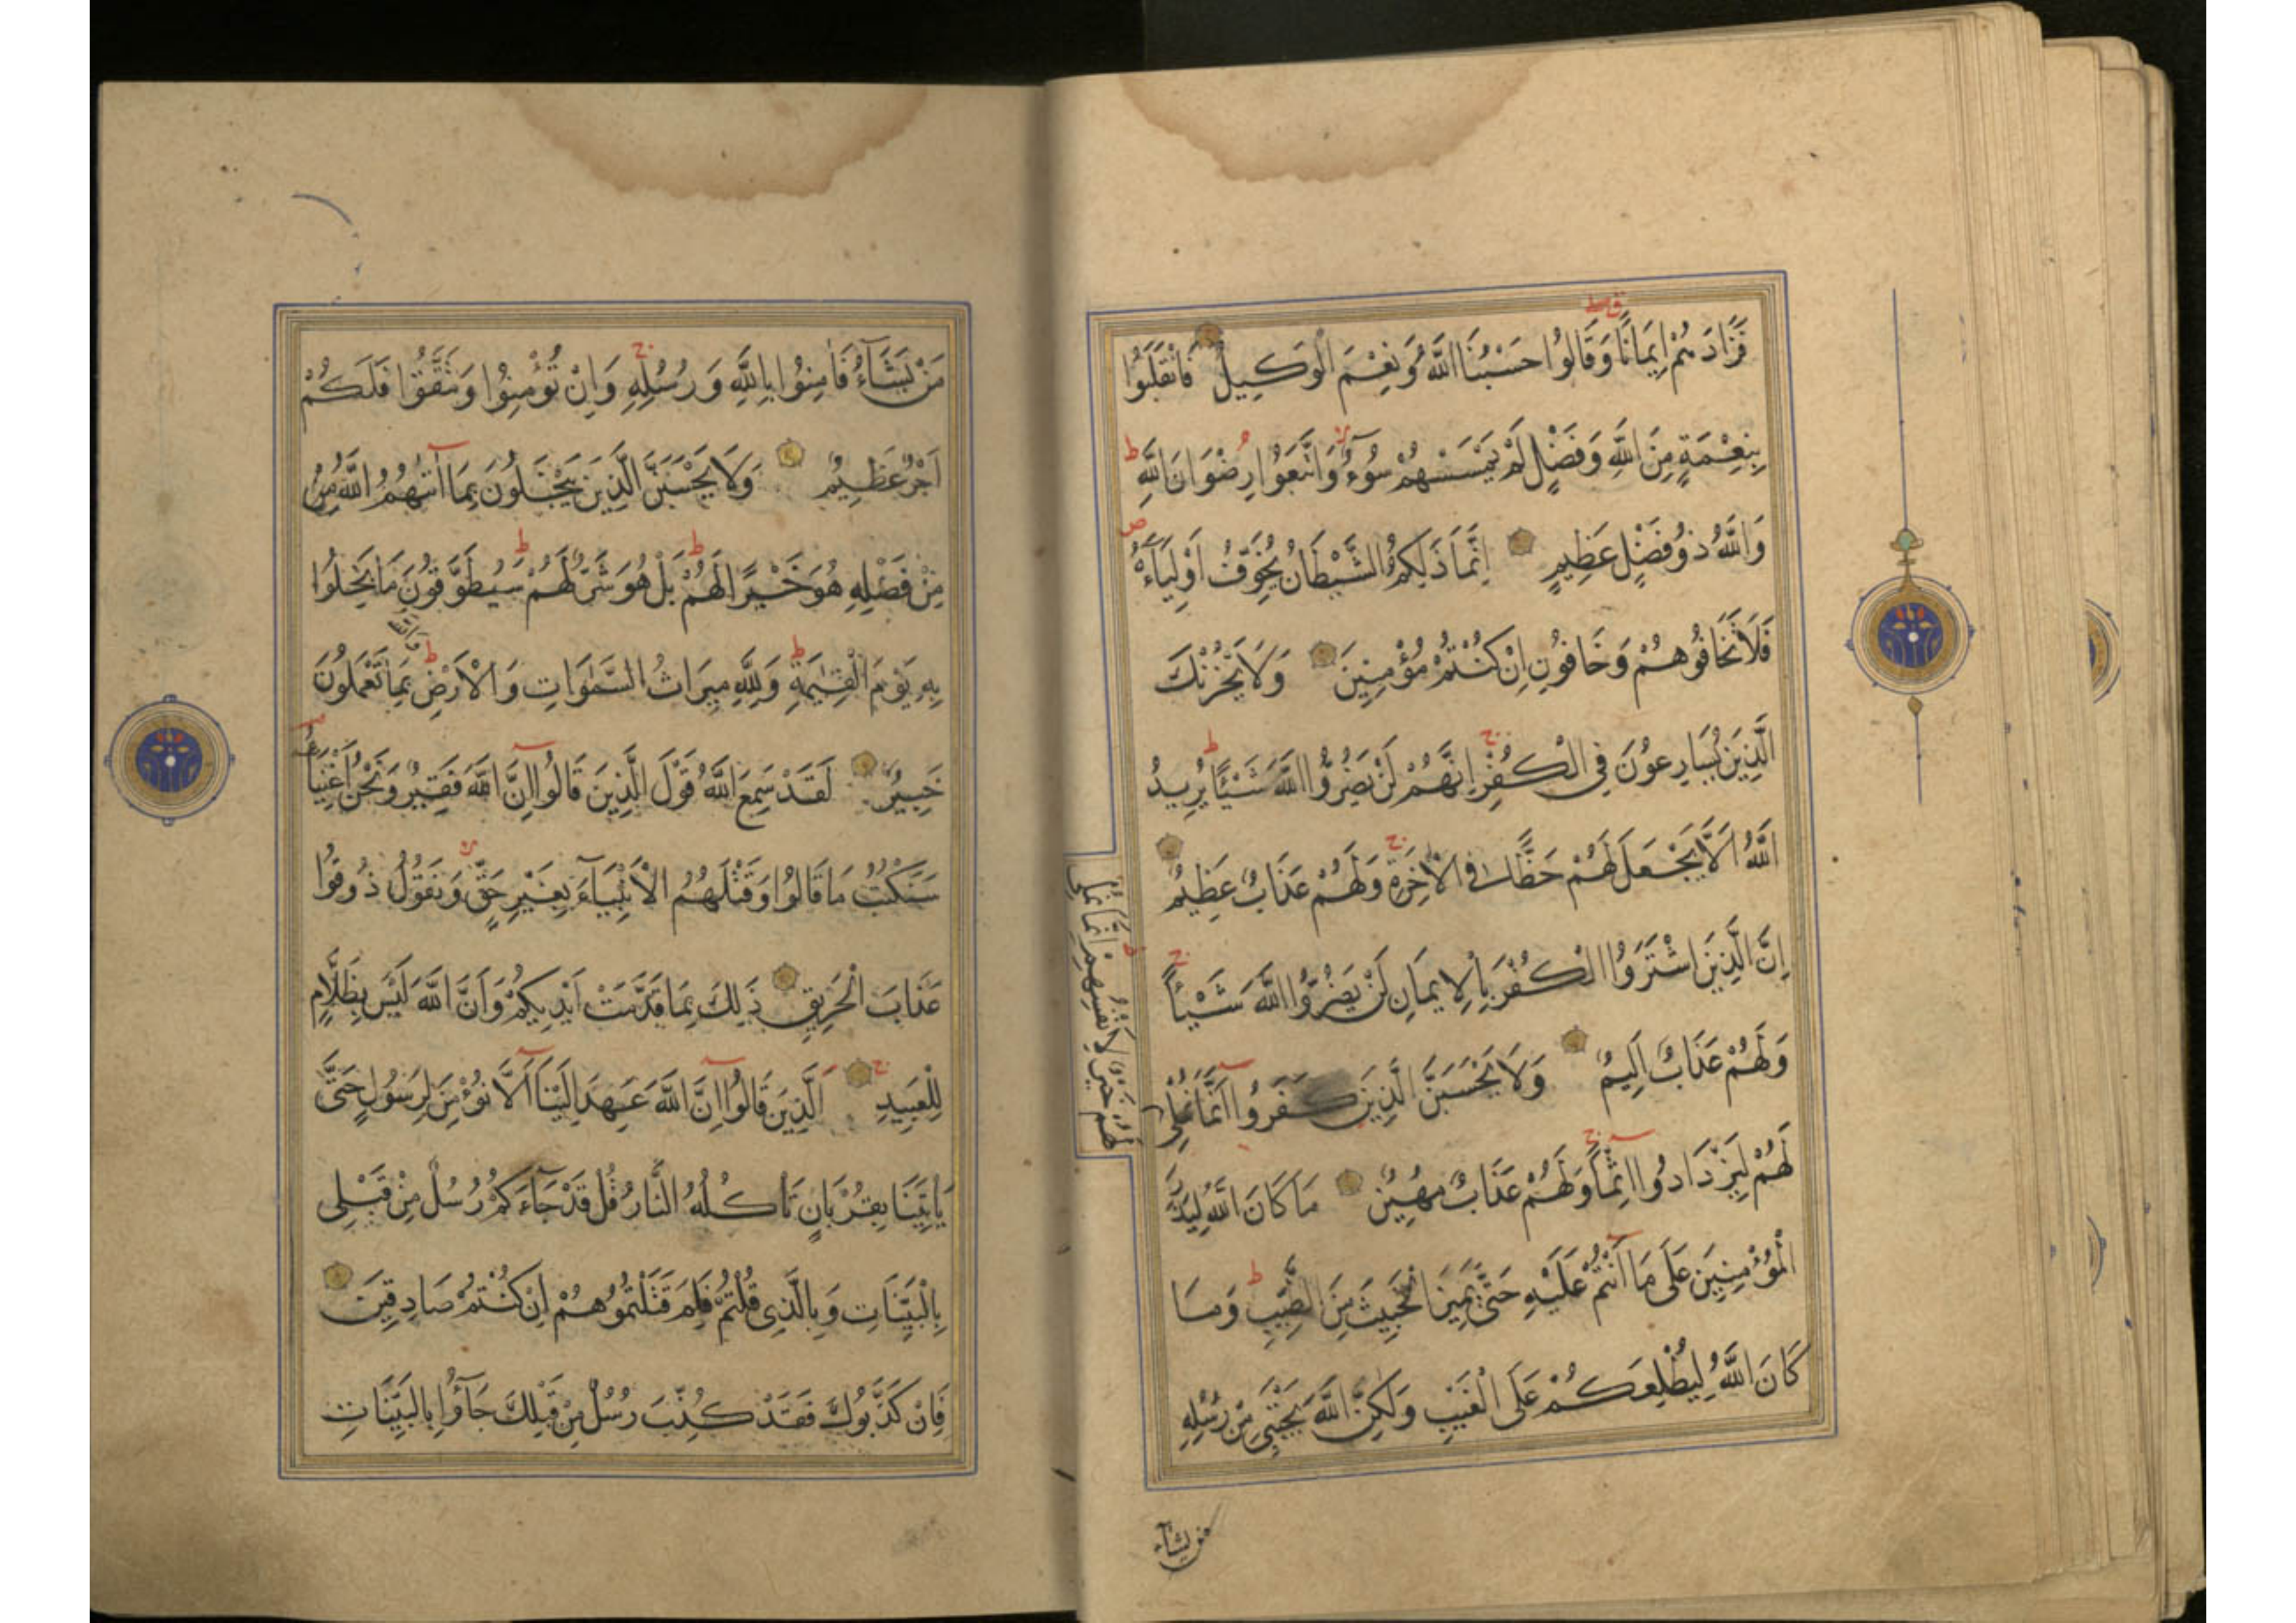 فَزَادَهُمْ اِيمَانًا وَقَالُوا حَسْبُنَا اللَّهُ وَنِعْمَ الْوَكِيلُ فَانْقَلَبُوا
بِنِعْمَةٍ مِنَ اللَّهِ وَفَضْلٍ لَمْ يَمْسَسْهُمْ سُوءٌ وَاتَّبَعُوا رِضْوَانَ اللَّهِ ط
وَاللَّهُ ذُو فَضْلٍ عَظِيمٍ اِنَّمَا ذَلِكُمُ الشَّيْطَانُ يُخَوِّفُ اَوْلِيَآءَهُ ص
فَلَا تَخَافُوهُمْ وَخَافُونِ اِنْ كُنْتُمْ مُؤْمِنِينَ وَلَا يَحْزُنْكَ
الَّذِينَ يُسَارِعُونَ فِي الْكُفْرِ ج اِنَّهُمْ لَنْ يَضُرُّوا اللَّهَ شَيْئًا ط يُرِيدُ
اللَّهُ اَلَّا يَجْعَلَ لَهُمْ حَظًّا فِي الْاٰخِرَةِ ج وَلَهُمْ عَذَابٌ عَظِيمٌ
اِنَّ الَّذِينَ اشْتَرَوُا الْكُفْرَ بِالْاِيمَانِ لَنْ يَضُرُّوا اللَّهَ شَيْئًا ج
وَلَهُمْ عَذَابٌ اَلِيمٌ وَلَا يَحْسَبَنَّ الَّذِينَ كَفَرُوا اَنَّمَا نُمْلِي
لَهُمْ خَيْرٌ لِاَنْفُسِهِمْ اِنَّمَا نُمْلِي
لَهُمْ لِيَزْدَادُوا اِثْمًا ج وَلَهُمْ عَذَابٌ مُهِينٌ مَا كَانَ اللَّهُ لِيَذَرَ
الْمُؤْمِنِينَ عَلَى مَا اَنْتُمْ عَلَيْهِ حَتَّى يَمِيزَ الْخَبِيثَ مِنَ الطَّيِّبِ ط وَمَا
كَانَ اللَّهُ لِيُطْلِعَكُمْ عَلَى الْغَيْبِ وَلَكِنَّ اللَّهَ يَجْتَبِي مِنْ رُسُلِهِ
من يشآء
مَنْ يَشَآءُ فَاٰمِنُوا بِاللَّهِ وَرُسُلِهِ ج وَاِنْ تُؤْمِنُوا وَتَتَّقُوا فَلَكُمْ
اَجْرٌ عَظِيمٌ وَلَا يَحْسَبَنَّ الَّذِينَ يَبْخَلُونَ بِمَا اٰتٰهُمُ اللَّهُ مِنْ
مِنْ فَضْلِهِ هُوَ خَيْرًا لَهُمْ ط بَلْ هُوَ شَرٌّ لَهُمْ ط سَيُطَوَّقُونَ مَا بَخِلُوا
بِهِ يَوْمَ الْقِيٰمَةِ ط وَلِلَّهِ مِيرَاثُ السَّمٰوَاتِ وَالْاَرْضِ ط وَاللّٰه بِمَا تَعْمَلُونَ
خَبِيرٌ لَقَدْ سَمِعَ اللَّهُ قَوْلَ الَّذِينَ قَالُوا اِنَّ اللَّهَ فَقِيرٌ وَنَحْنُ اَغْنِيَاءُ
سَنَكْتُبُ مَا قَالُوا وَقَتْلَهُمُ الْاَنْبِيَآءَ بِغَيْرِ حَقٍّ وَنَقُولُ ذُوقُوا
عَذَابَ الْحَرِيقِ ذَلِكَ بِمَا قَدَّمَتْ اَيْدِيكُمْ وَاَنَّ اللَّهَ لَيْسَ بِظَلَّامٍ
لِلْعَبِيدِ ج اَلَّذِينَ قَالُوا اِنَّ اللَّهَ عَهِدَ اِلَيْنَا اَلَّا نُؤْمِنَ لِرَسُولٍ حَتَّى
يَاْتِيَنَا بِقُرْبَانٍ تَاْكُلُهُ النَّارُ قُلْ قَدْ جَآءَكُمْ رُسُلٌ مِنْ قَبْلِي
بِالْبَيِّنَاتِ وَبِالَّذِي قُلْتُمْ فَلِمَ قَتَلْتُمُوهُمْ اِنْ كُنْتُمْ صَادِقِينَ
فَاِنْ كَذَّبُوكَ فَقَدْ كُذِّبَ رُسُلٌ مِنْ قَبْلِكَ جَآؤُا بِالْبَيِّنَاتِ